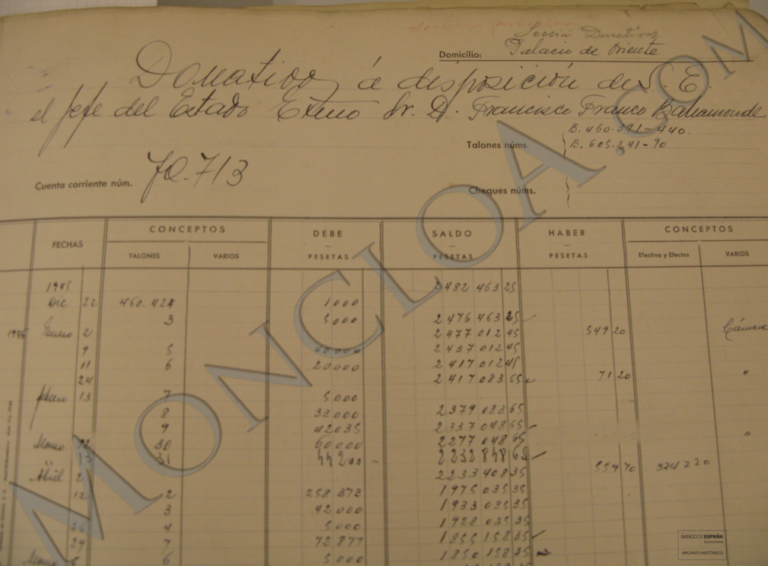 Domicilio: Palacio de Oriente
Donativos á disposición de S. E.
el Jefe del Estado Excmo Sr. D. Francisco Franco Bahamonde
Talones núms. B. 460.391-440
B. 605.241-90
Cuenta corriente núm. 70.713
Cheques núms.
FECHAS CONCEPTOS DEBE SALDO HABER CONCEPTOS
TALONES VARIOS PESETAS PESETAS PESETAS Efectivo y Efectos VARIOS
1945 2482 463 25
Dic 22 460.424 1000
3 5000 2476 463 25
1946 Enero 2 2477 012 45 549 20
9 5 40.000 2437 012 45
11 6 20.000 2417 012 45
24 2417 083 65 71 20 "
Febrero 13 7 5.000
8 33.000 2379 083 65
9 42035 2337 048 65 "
30 60.000 2277 048 65
31 44200 2232 848 65
Abril 2 2233 408 35 559 70
12 2 258 373 1975 035 35
3 42.000 1933 035 35
4 5.000 1928 035 35
29 7 72.877 1855 158 35
6 5.000 1850 158 35
MONCLOA.COM
BANCO DE ESPAÑA
ARCHIVO HISTÓRICO